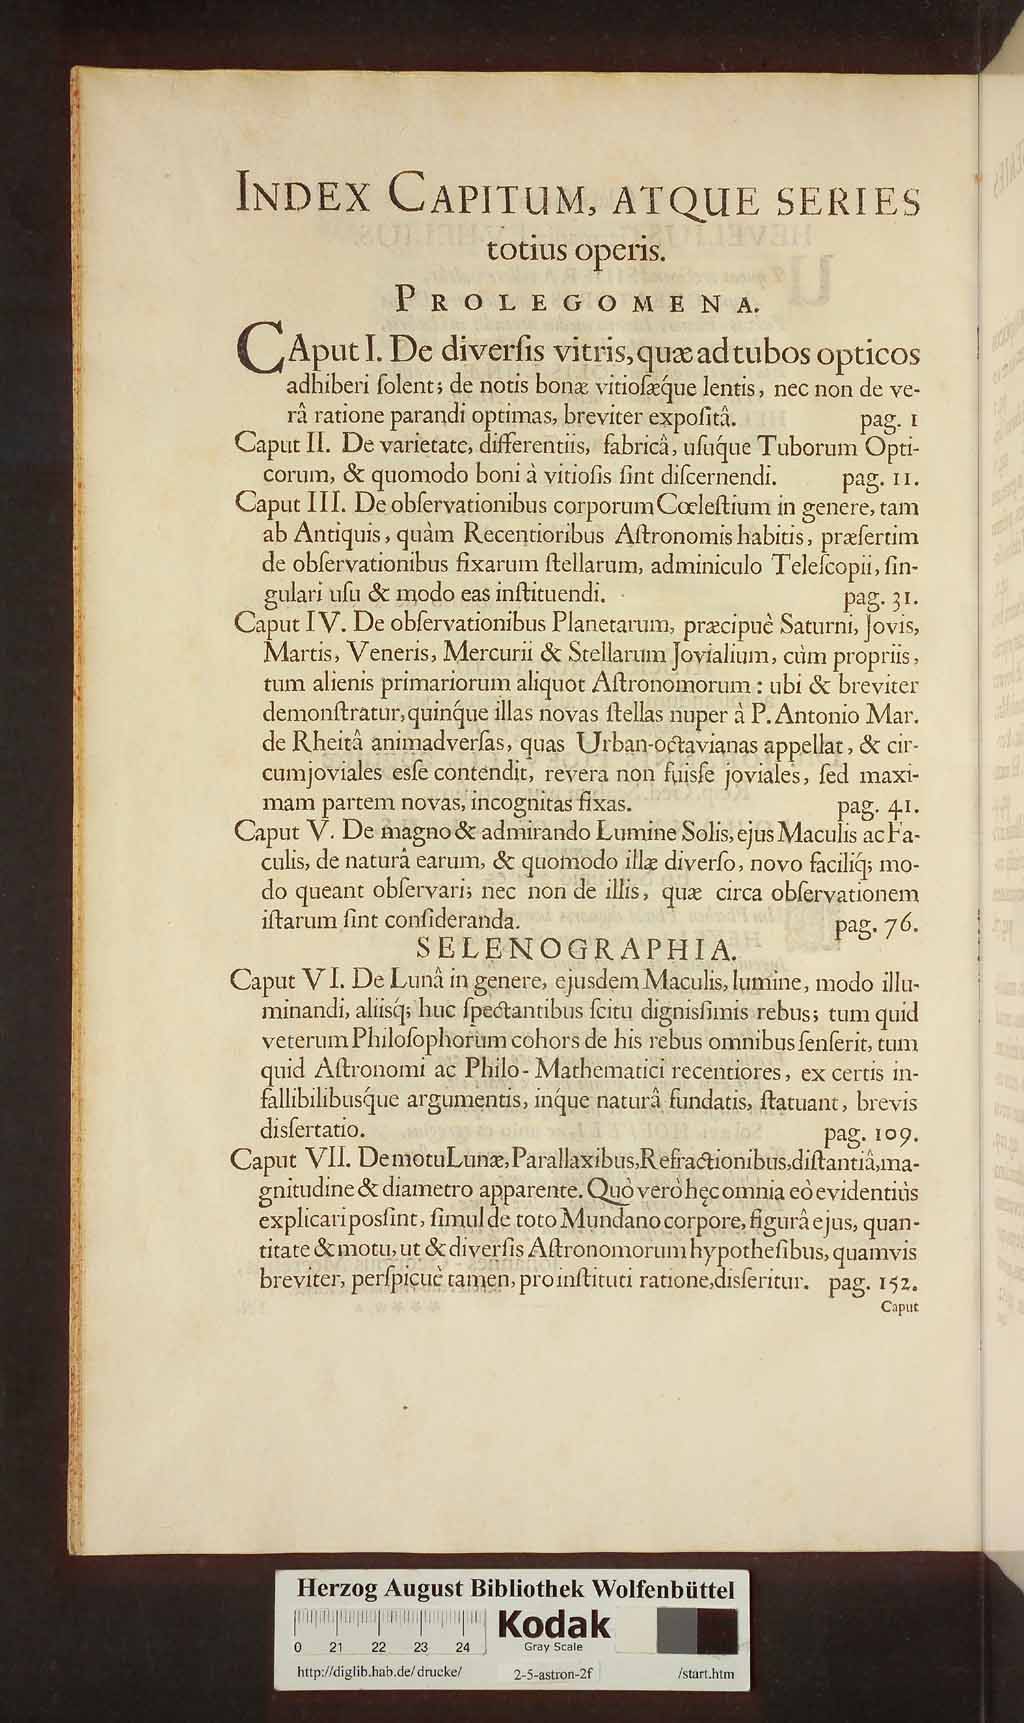 INDEX CAPITUM, ATQUE SERIES
totius operis.
PROLEGOMENA.
CAput I. De diverſis vitris, quæ ad tubos opticos
adhiberi ſolent; de notis bonæ vitioſæq́ue lentis, nec non de ve-
râ ratione parandi optimas, breviter expoſitâ. pag. 1
Caput II. De varietate, differentiis, fabricâ, uſuq́ue Tuborum Opti-
corum, & quomodo boni à vitioſis ſint diſcernendi. pag. 11.
Caput III. De obſervationibus corporum Cœleſtium in genere, tam
ab Antiquis, quàm Recentioribus Aſtronomis habitis, præſertim
de obſervationibus fixarum ſtellarum, adminiculo Teleſcopii, ſin-
gulari uſu & modo eas inſtituendi. pag. 31.
Caput IV. De obſervationibus Planetarum, præcipuè Saturni, Jovis,
Martis, Veneris, Mercurii & Stellarum Jovialium, cùm propriis,
tum alienis primariorum aliquot Aſtronomorum: ubi & breviter
demonſtratur, quinq́ue illas novas ſtellas nuper à P. Antonio Mar.
de Rheitâ animadverſas, quas Urban-octavianas appellat, & cir-
cumjoviales esſe contendit, revera non fuisſe joviales, ſed maxi-
mam partem novas, incognitas fixas. pag. 41.
Caput V. De magno & admirando Lumine Solis, ejus Maculis ac Fa-
culis, de naturâ earum, & quomodo illæ diverſo, novo faciliq́; mo-
do queant obſervari; nec non de illis, quæ circa obſervationem
iſtarum ſint conſideranda. pag. 76.
SELENOGRAPHIA.
Caput VI. De Lunâ in genere, ejusdem Maculis, lumine, modo illu-
minandi, aliisq́; huc ſpectantibus ſcitu dignisſimis rebus; tum quid
veterum Philoſophorum cohors de his rebus omnibus ſenſerit, tum
quid Aſtronomi ac Philo-Mathematici recentiores, ex certis in-
fallibilibusq́ue argumentis, inq́ue naturâ fundatis, ſtatuant, brevis
disſertatio. pag. 109.
Caput VII. De motu Lunæ, Parallaxibus, Refractionibus, diſtantiâ, ma-
gnitudine & diametro apparente. Quò verò hęc omnia eò evidentiùs
explicari posſint, ſimul de toto Mundano corpore, figurâ ejus, quan-
titate & motu, ut & diverſis Aſtronomorum hypotheſibus, quamvis
breviter, perſpicuè tamen, pro inſtituti ratione, disſeritur. pag. 152.
Caput
Herzog August Bibliothek Wolfenbüttel
Kodak
Gray Scale
0 21 22 23 24
http://diglib.hab.de/drucke/ 2-5-astron-2f /start.htm